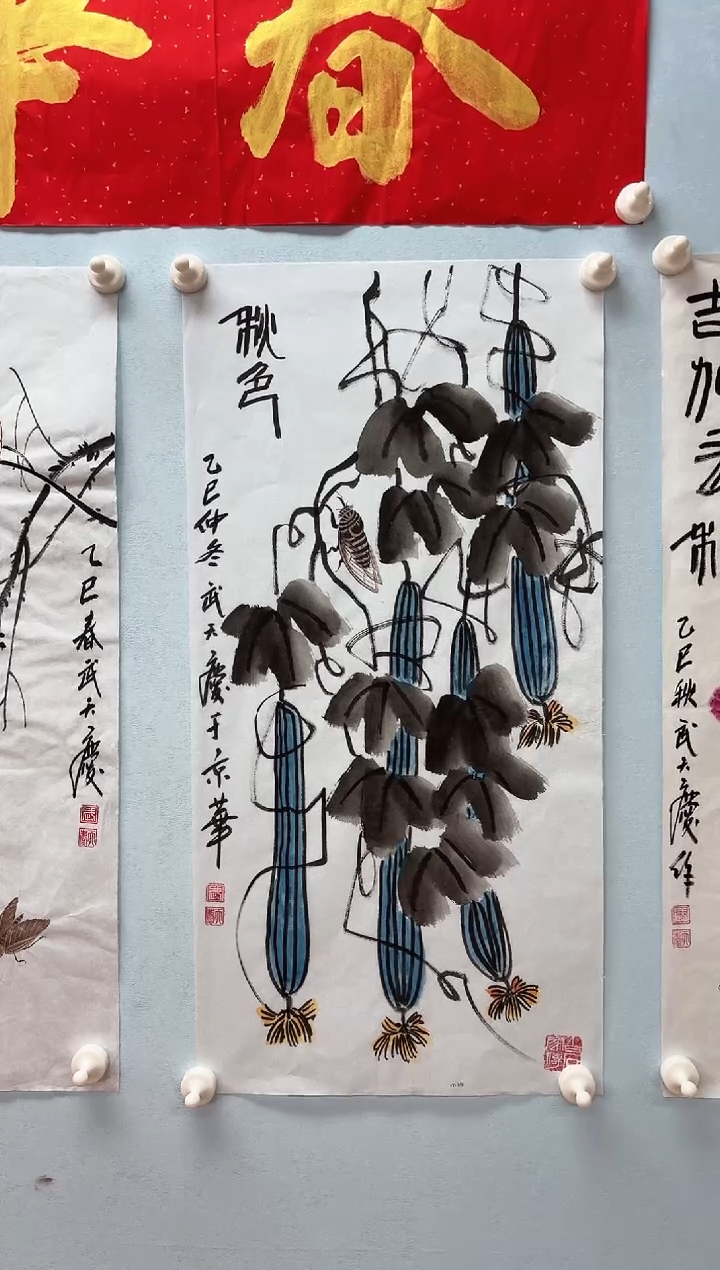 春
秋色
乙巳仲冬武大庆于京华
乙巳春武大庆
吉
加
乙巳秋武大庆作